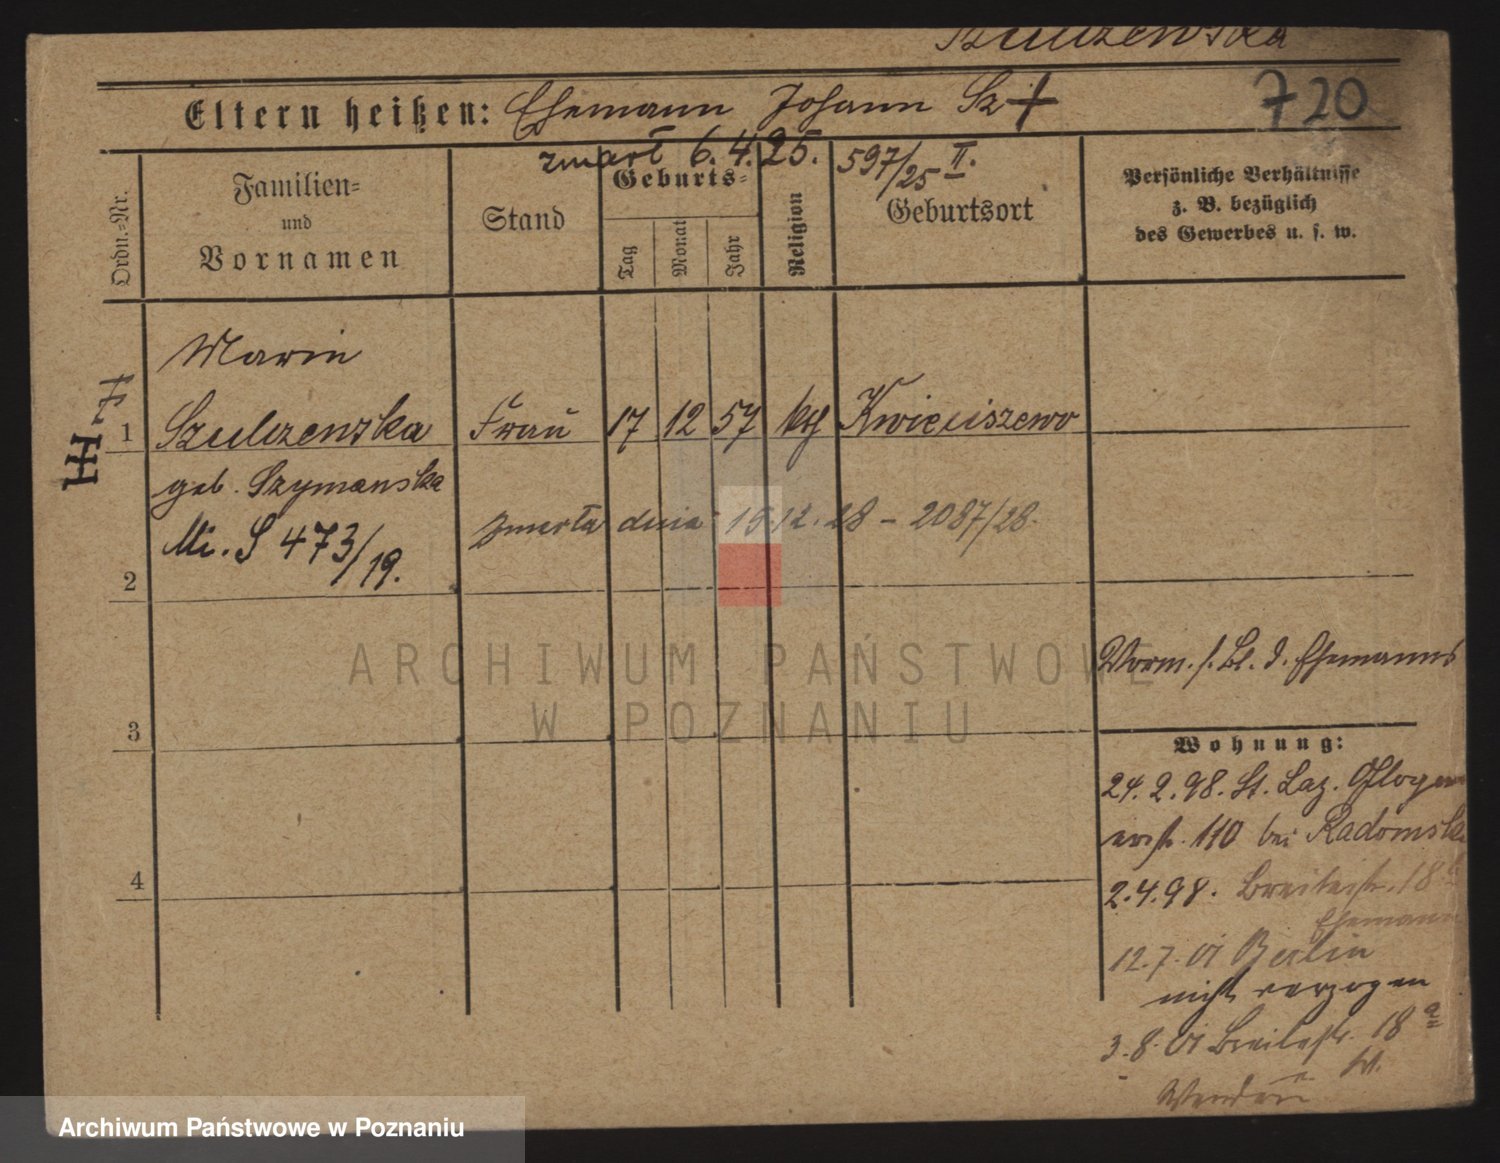 Szulczewska
720
Eltern heißen: Ehemann Johann Sz
zmarł 6.4.25. 597/25 II.
Ordn.-Nr.
Familien-
und
Vornamen
Stand
Geburts-
Tag
Monat
Jahr
Religion
Geburtsort
Persönliche Verhältnisse
z. B. bezüglich
des Gewerbes u. s. w.
Marie
1 Szulczewska Frau 17 12 57 kth Kwieciszewo
geb. Szymanska
zmarła dnia 15.12.28 - 2087/28.
Mi. S 473/19.
2
Vorm. s. Bl. d. Ehemanns
3
Wohnung:
24.2.98. St. Laz. Glogau
erstr. 110 bei Radomska
2.4.98. Breitestr. 18
Ehemann
4
12.7.01 Berlin
nicht verzogen
3.8.01 Breitestr. 18 a
W.
ARCHIWUM PAŃSTWOWE
W POZNANIU
Archiwum Państwowe w Poznaniu